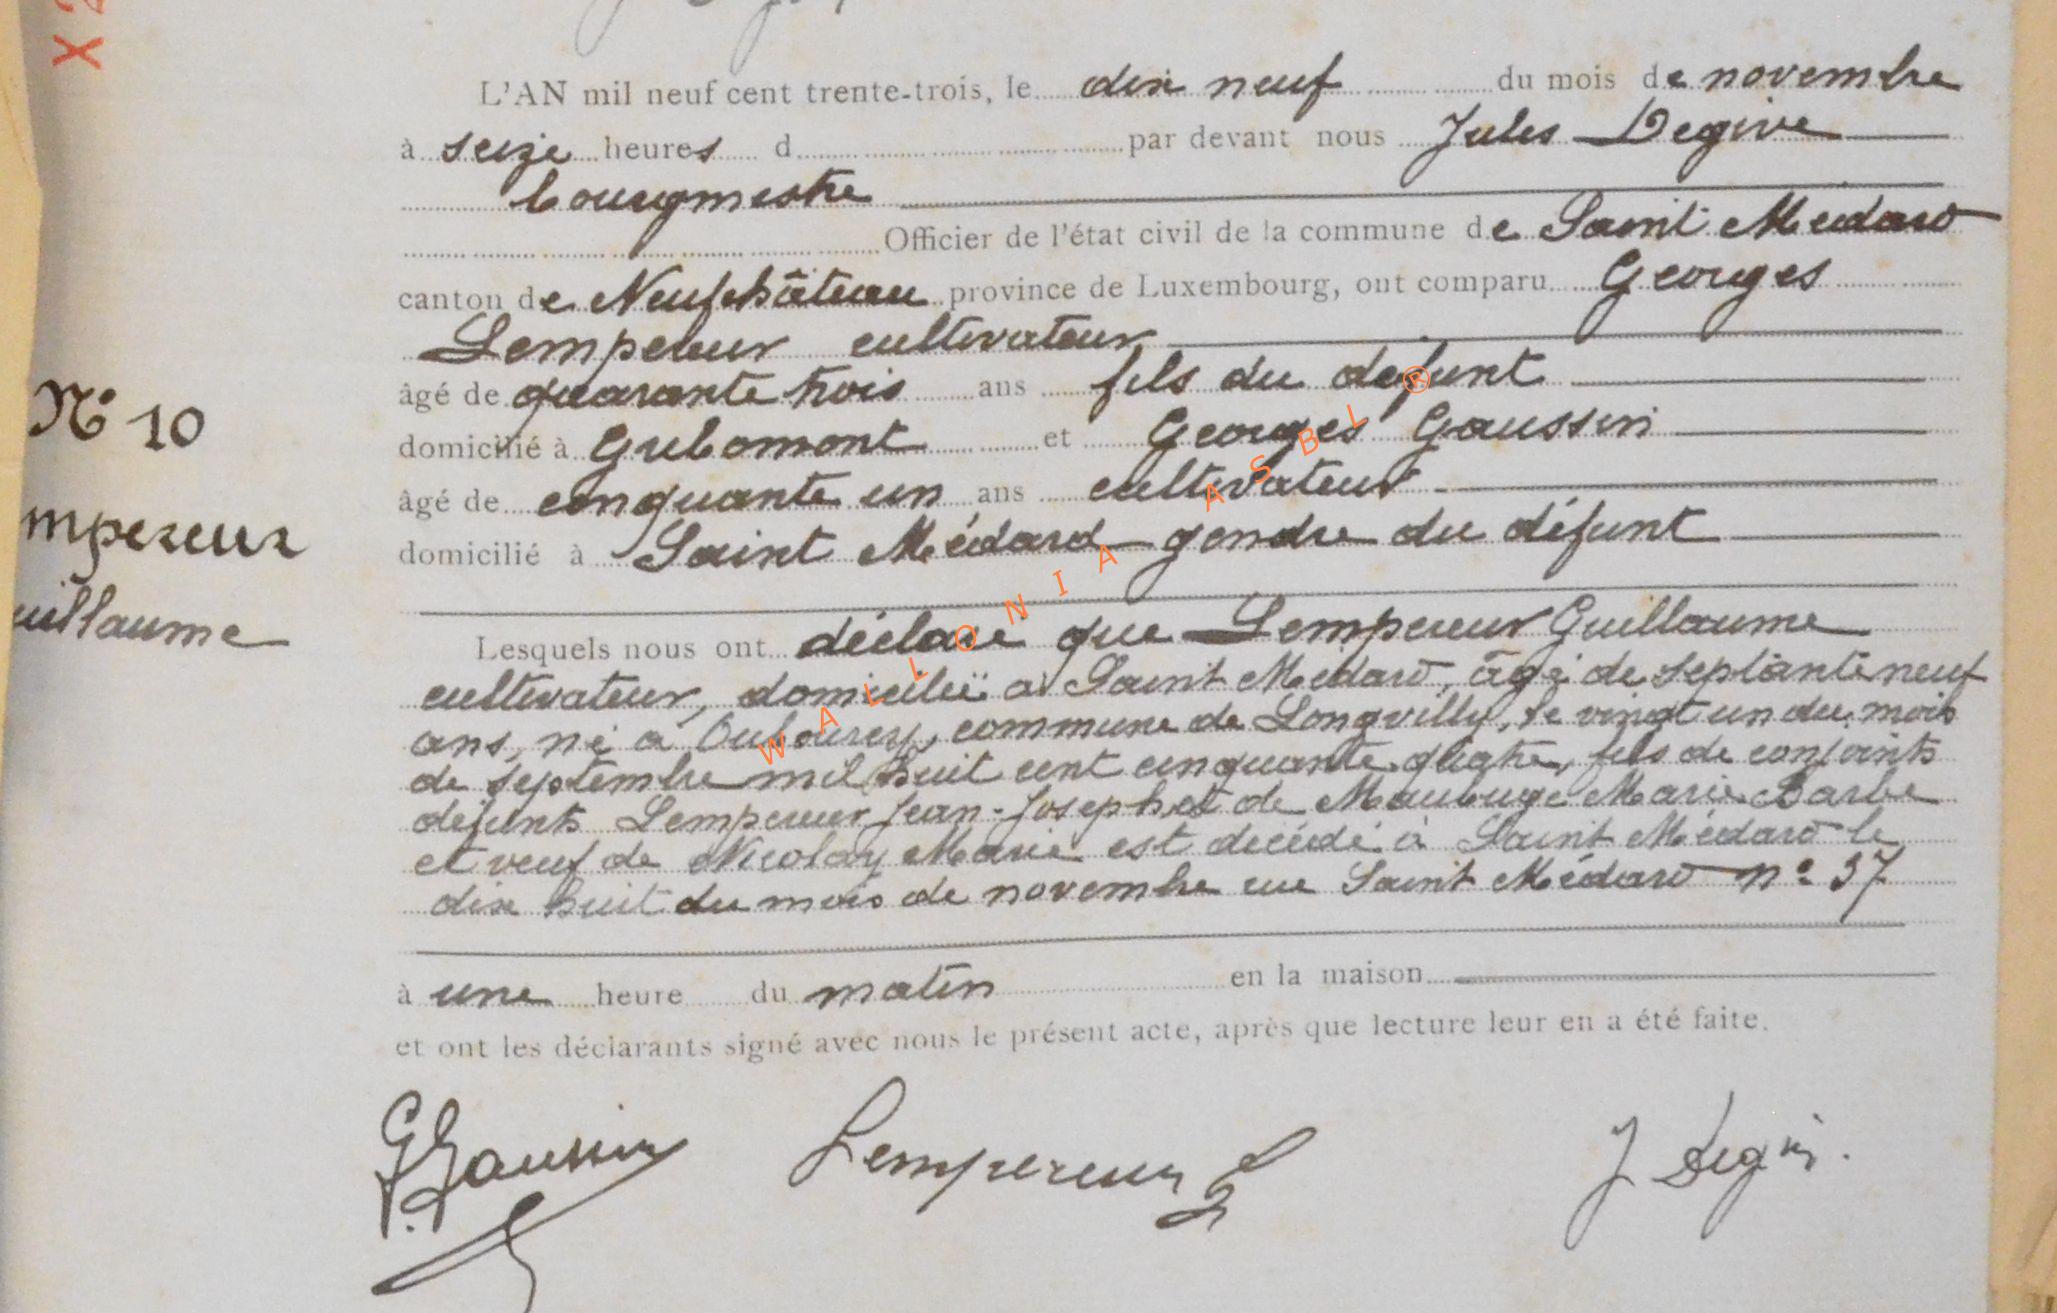 L'AN mil neuf cent trente-trois, le dix neuf du mois de novembre
à seize heures d par devant nous Jules Degive
bourgmestre
Officier de l'état civil de la commune de Saint Médard
canton de Neufchâteau province de Luxembourg, ont comparu Georges
Lempereur cultivateur
âgé de quarante trois ans fils du défunt
domicilié à Gribomont et Georges Gaussin
âgé de cinquante un ans cultivateur
domicilié à Saint Médard gendre du défunt
N° 10
mpereur
uillaume
Lesquels nous ont déclaré que Lempereur Guillaume
cultivateur, domicilié à Saint Médard, âgé de septante neuf
ans, né à Oubourcy, commune de Longvilly, le vingt un du mois
de septembre mil huit cent cinquante quatre, fils de conjoints
défunts Lempereur Jean-Joseph et de Maubuge Marie Barbe
et veuf de Nicolay Marie est décédé à Saint Médard le
dix huit du mois de novembre rue Saint Médard n° 37
à une heure du matin en la maison
et ont les déclarants signé avec nous le présent acte, après que lecture leur en a été faite.
G Gaussin Lempereur J Degive
WALLONIA ASBL ®
X 2